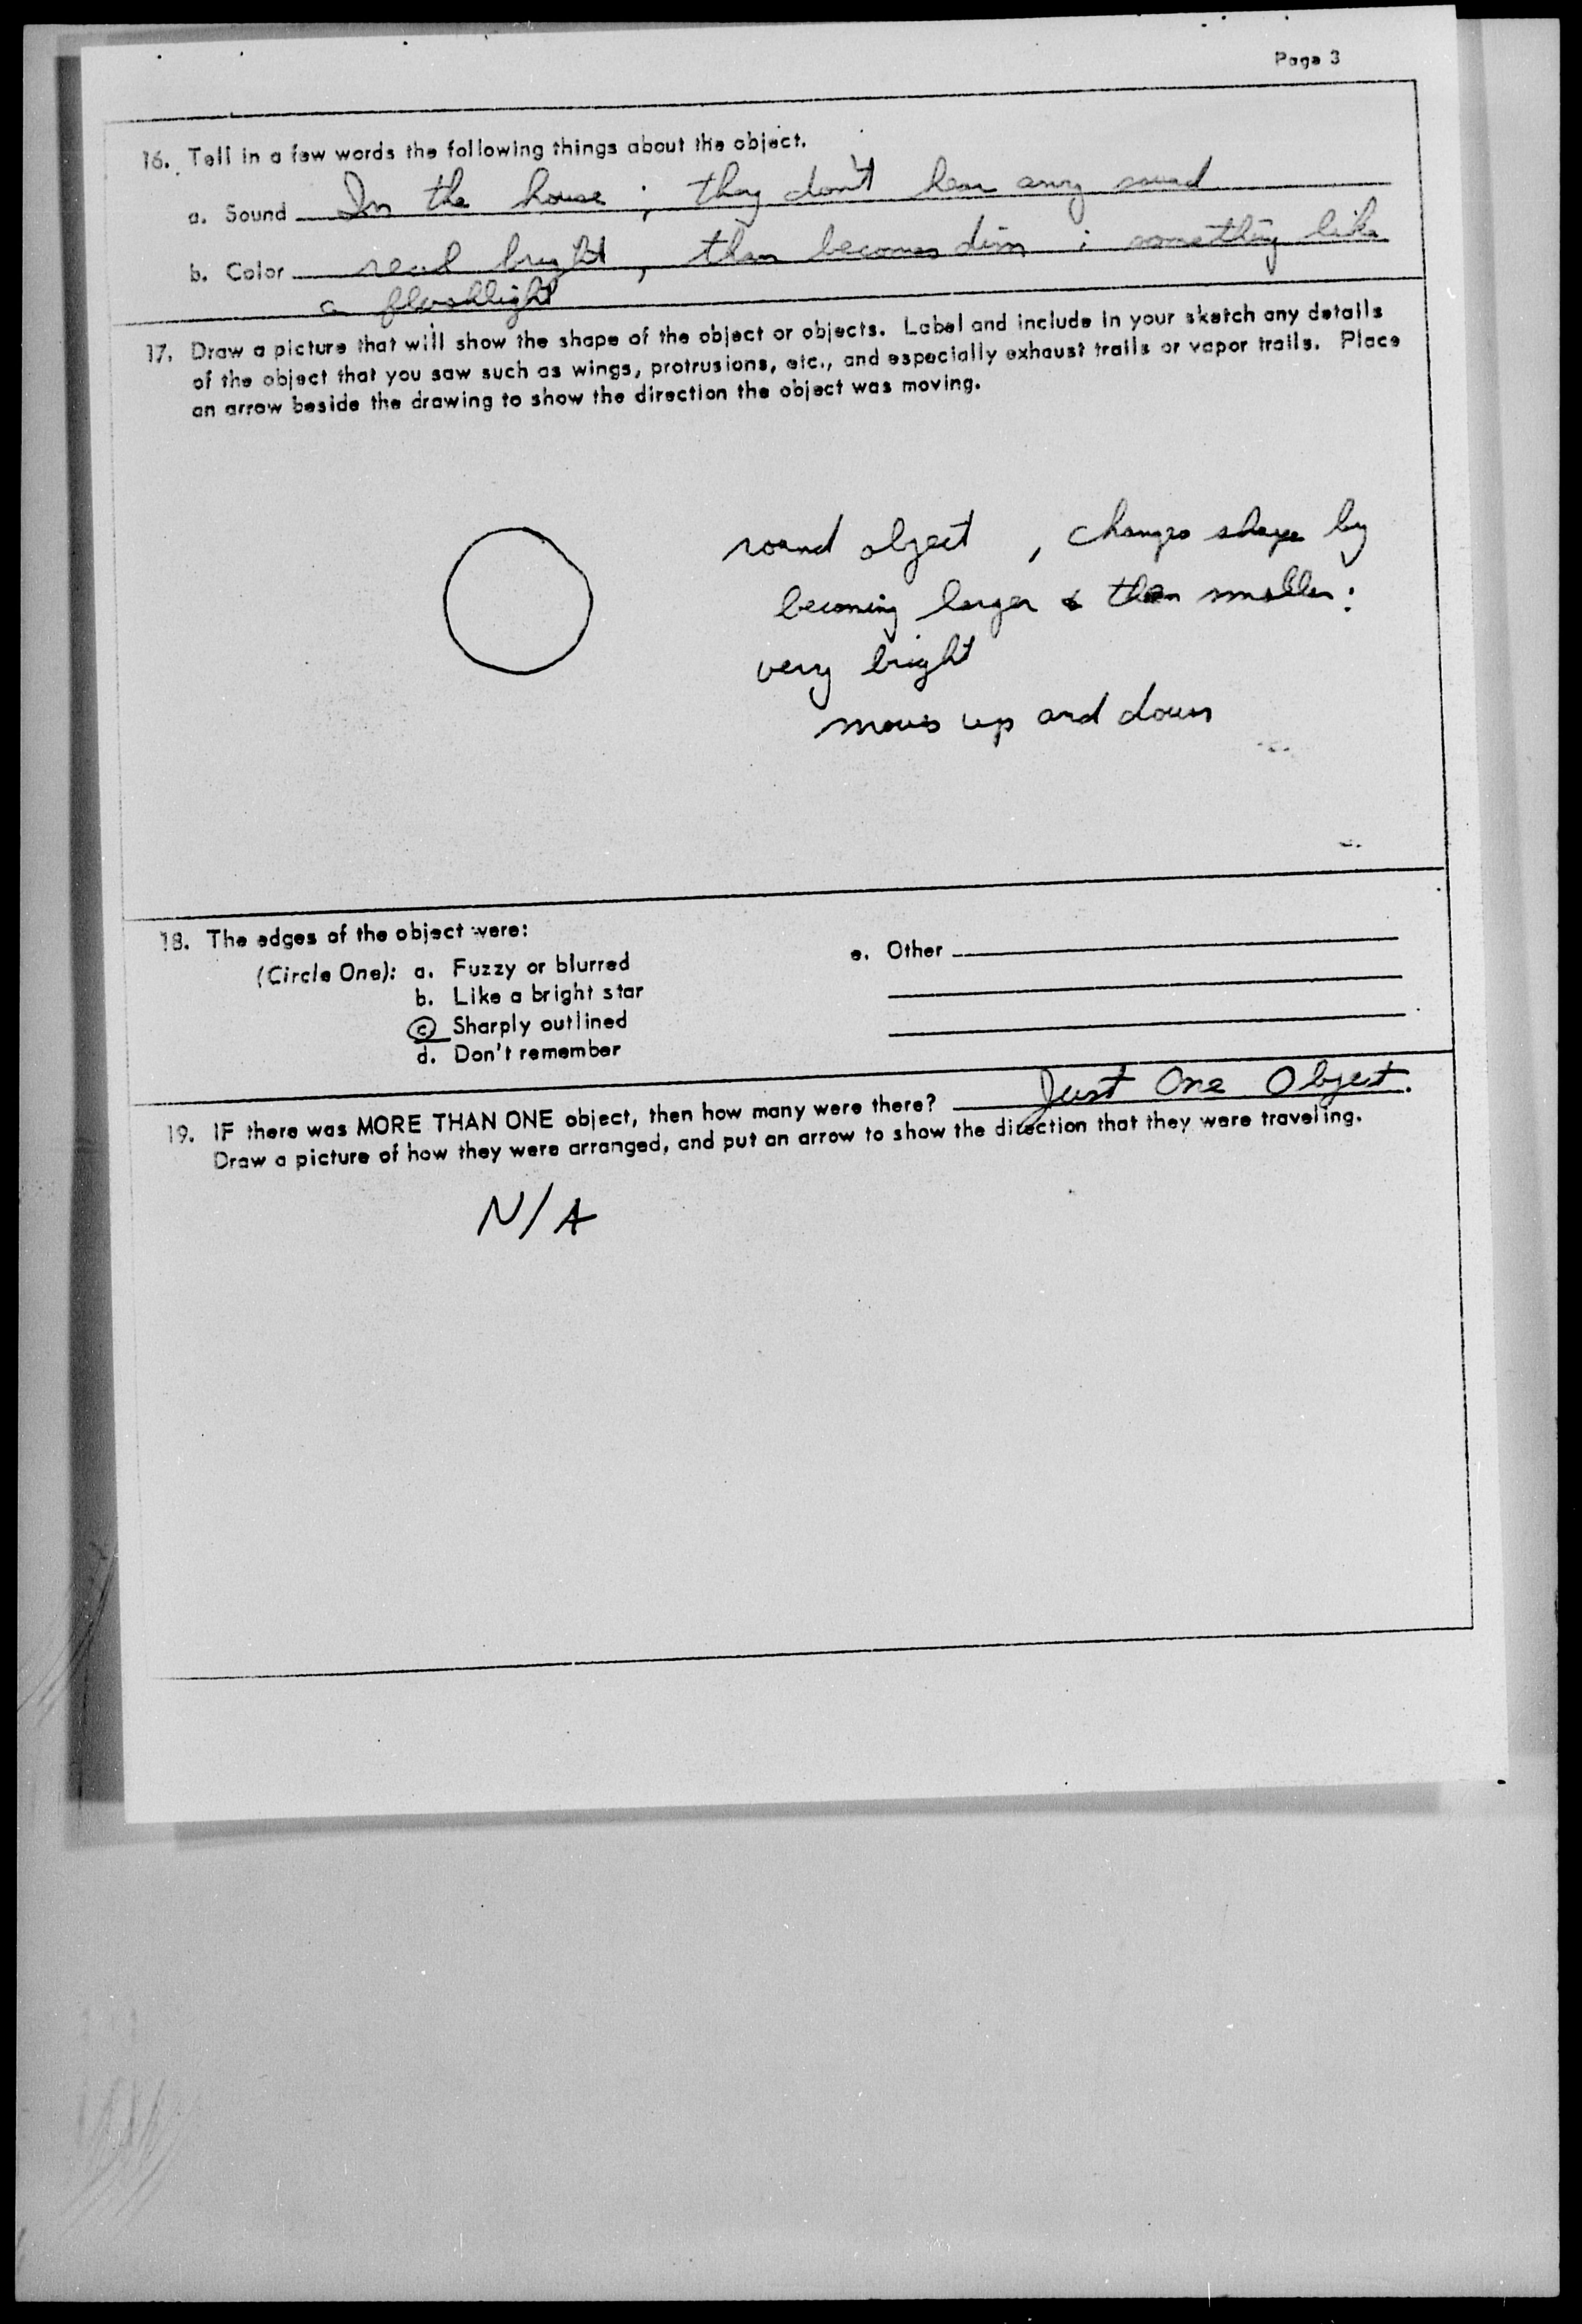 Page 3
16. Tell in a few words the following things about the object.
a. Sound In the house ; they don't hear any sound
b. Color real bright, then becomes dim ; something like
a flashlight
17. Draw a picture that will show the shape of the object or objects. Label and include in your sketch any details
of the object that you saw such as wings, protrusions, etc., and especially exhaust trails or vapor trails. Place
an arrow beside the drawing to show the direction the object was moving.
round object , changes shape by
becoming larger & then smaller ;
very bright
moves up and down
18. The edges of the object were:
(Circle One): a. Fuzzy or blurred
b. Like a bright star
c Sharply outlined
d. Don't remember
e. Other
19. IF there was MORE THAN ONE object, then how many were there? Just One Object.
Draw a picture of how they were arranged, and put an arrow to show the direction that they were traveling.
N/A